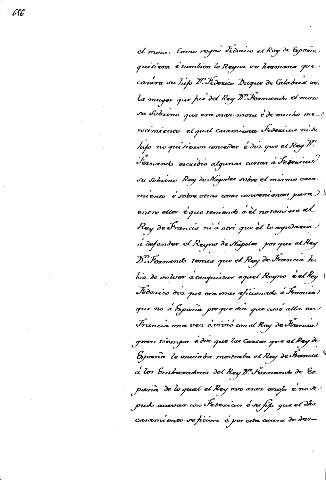 656
el mozo. Como rogase Federico al Rey de España
quisiera é tambien la Reyna su hermana que
casára su hijo Dⁿ Federico Duque de Calabria con
la muger que fué del Rey Dⁿ Fernando el mozo
su Sobrino que era gran moza é de mucho me-
recimiento el qual casamiento Federico ni su
hijo no quisieron conceder é dis que el Rey Dⁿ
Fernando escribió algunas cartas á Federico
su Sobrino Rey de Napoles sobre el mismo casa-
miento é sobre otras cosas convenientes para
entre ellos é que temiendo á el no tomára el
Rey de Francia ni á otri que él lo ayudaria
á defender el Reyno de Napoles por que el Rey
Dⁿ Fernando temia que el Rey de Francia ha-
bia de volver á conquistar aquel Reyno é el Rey
Federico dis que era mas aficionado á Francia
que no á España porque dis que casó allá en
Francia una vez é vivió con el Rey de Francia
gran tiempo é dis que las Cartas que el Rey de
España le enviaba mostraba al Rey de Francia
á los Embaxadores del Rey Dⁿ Fernando de Es-
paña de lo qual el Rey ovo gran enojo é no se
pudo acavar con Federico é su hijo que el dho
casamiento se ficiera é por esta causa de des-